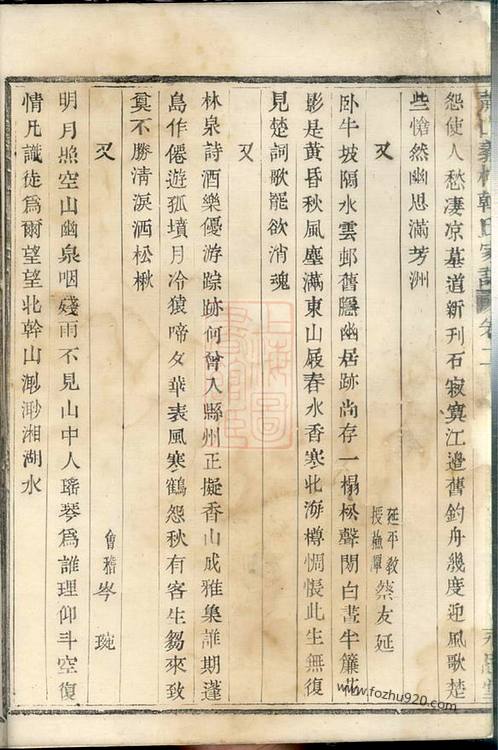 蕭山義橋韓氏家譜 卷二
怨使人愁凄凉墓道新刊石寂寞江邉舊釣舟幾度迎風歌楚
些愴然幽思滿芳洲
又
延平教授蕪湖 蔡友延
卧牛坡隔水雲邨舊隱幽居跡尚存一榻松聲閒白晝半簾花
影是黃昏秋風塵滿東山屐春水香寒北海樽惆悵此生無復
見楚詞歌罷欲消魂
又
林泉詩酒樂優游踪跡何曾入縣州正擬香山成雅集誰期蓬
島作僊遊孤墳月冷猿啼夕華表風寒鶴怨秋有客生芻來致
奠不勝清淚洒松楸
又
會稽 岑琬
明月照空山幽泉咽殘雨不見山中人瑤琴為誰理仰斗空復
情凡識徒爲爾望望北幹山渺渺湘湖水
上海圖書館藏
www.fozhu920.com